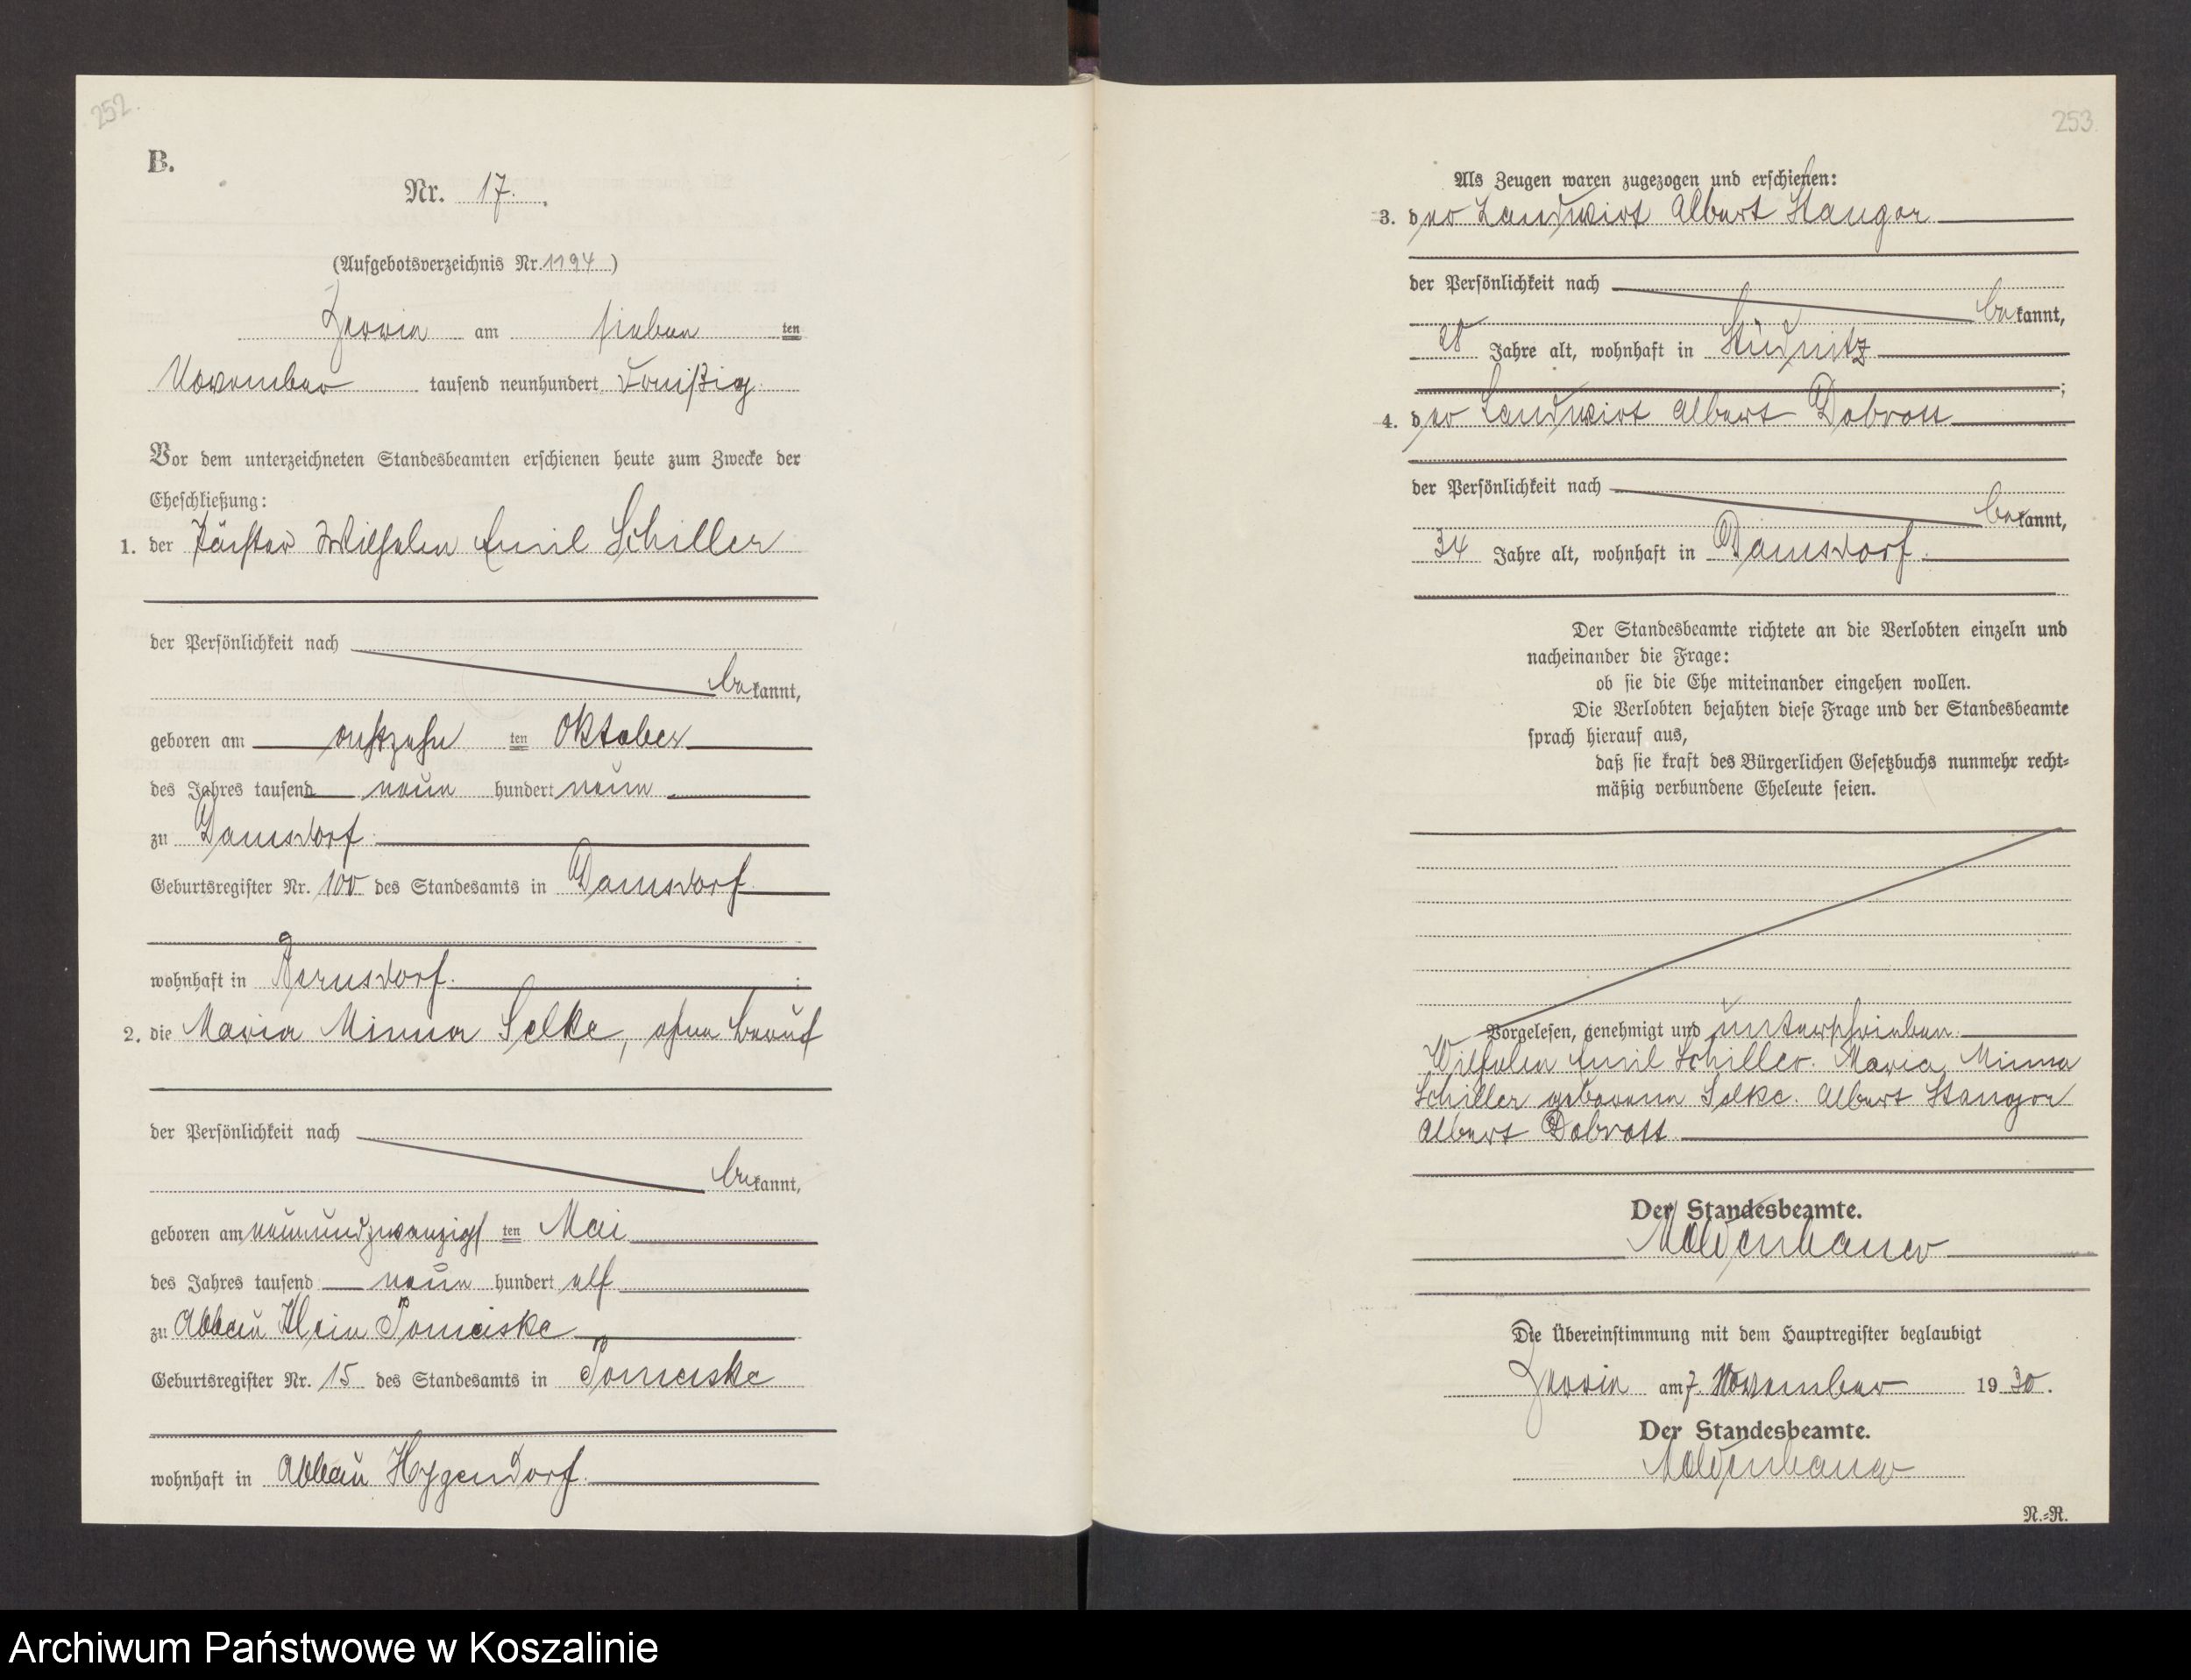 252.
B.
Nr. 17.
(Aufgebotsverzeichnis Nr. 1194)
Zerrin am sieben ten
November tausend neunhundert dreißig.
Vor dem unterzeichneten Standesbeamten erschienen heute zum Zwecke der
Eheschließung:
1. der Wilhelm Emil Schiller
der Persönlichkeit nach
bekannt,
geboren am achtzehn ten Oktober
des Jahres tausend neun hundert neun
zu Damsdorf
Geburtsregister Nr. 100 des Standesamts in Damsdorf
wohnhaft in Bernsdorf.
2. die Maria Minna Selke, ohne Beruf
der Persönlichkeit nach
bekannt,
geboren am neunundzwanzigs ten Mai
des Jahres tausend neun hundert elf
zu Abbau Klein Pomeiske
Geburtsregister Nr. 15 des Standesamts in Pomeiske
wohnhaft in Abbau Hygendorf.
253.
Als Zeugen waren zugezogen und erschienen:
3. der Landwirt Albert Stanger
der Persönlichkeit nach
bekannt,
28 Jahre alt, wohnhaft in Stüdnitz
;
4. der Landwirt Albert Dobratt
der Persönlichkeit nach
bekannt,
34 Jahre alt, wohnhaft in Damsdorf.
Der Standesbeamte richtete an die Verlobten einzeln und
nacheinander die Frage:
ob sie die Ehe miteinander eingehen wollen.
Die Verlobten bejahten diese Frage und der Standesbeamte
sprach hierauf aus,
daß sie kraft des Bürgerlichen Gesetzbuchs nunmehr recht-
mäßig verbundene Eheleute seien.
Vorgelesen, genehmigt und unterschrieben.
Wilhelm Emil Schiller. Maria Minna
Schiller geborene Selke. Albert Stanger
Albert Dobratt
Der Standesbeamte.
Moldenhauer
Die Übereinstimmung mit dem Hauptregister beglaubigt
Zerrin am 7. November 1930.
Der Standesbeamte.
Moldenhauer
N.-R.
Archiwum Państwowe w Koszalinie